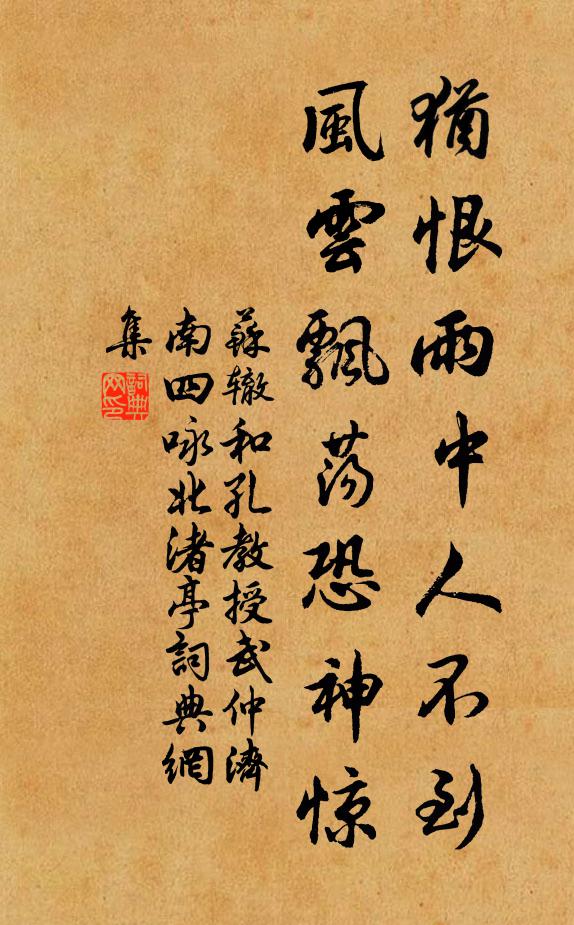 猶恨雨中人不到
風雲飄蕩恐神惊
蘇辙和孔教授武仲濟
南四咏北渚亭詞典網
集
詞典
网印